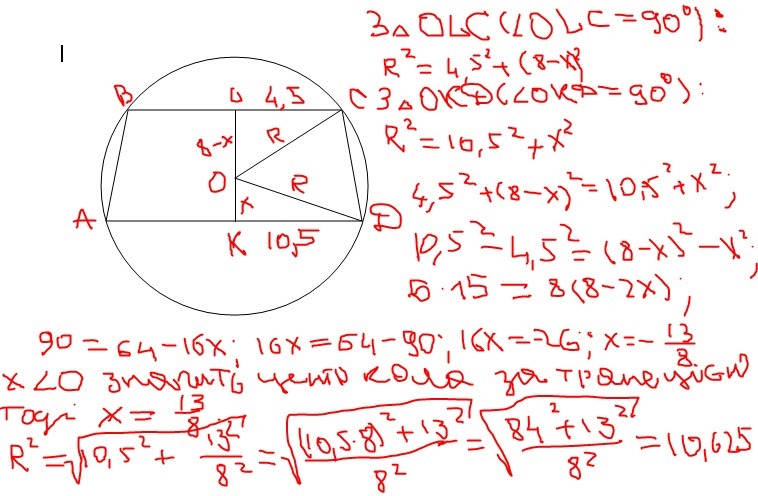 З△OLC(∠OLC=90°):
R²=4,5²+(8-x)²
B L 4,5 C З△OKD(∠OKD=90°):
8-x R R²=10,5²+x²
O R 4,5²+(8-x)²=10,5²+x²;
x
A K 10,5 D 10,5²-4,5²=(8-x)²-x²;
6·15=8(8-2x);
90=64-16x; 16x=64-90; 16x=-26; x=-13/8
x<0 значить центр кола за трапецією
тоді x=13/8
R²=√(10,5²+13²/8²)=√(((10,5·8)²+13²)/8²)=√((84²+13²)/8²)=10,625